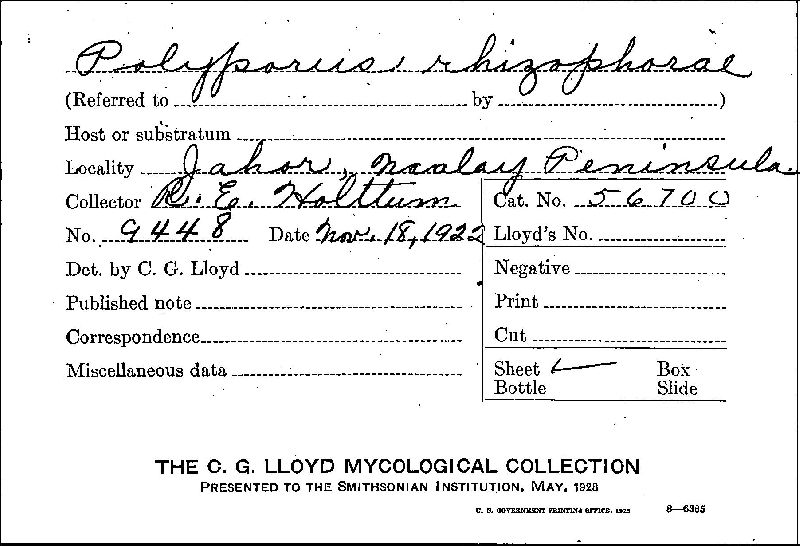 Polyporus rhizophorae
(Referred to by )
Host or substratum
Locality Jahor, Malay Peninsula.
Collector R. E. Holttum Cat. No. 56700
No. 9448 Date Nov. 18, 1922 Lloyd's No.
Det. by C. G. Lloyd Negative
Published note Print
Correspondence Cut
Miscellaneous data Sheet Box
Bottle Slide
THE C. G. LLOYD MYCOLOGICAL COLLECTION
PRESENTED TO THE SMITHSONIAN INSTITUTION, MAY, 1928
U. S. GOVERNMENT PRINTING OFFICE, 1928 8—6385